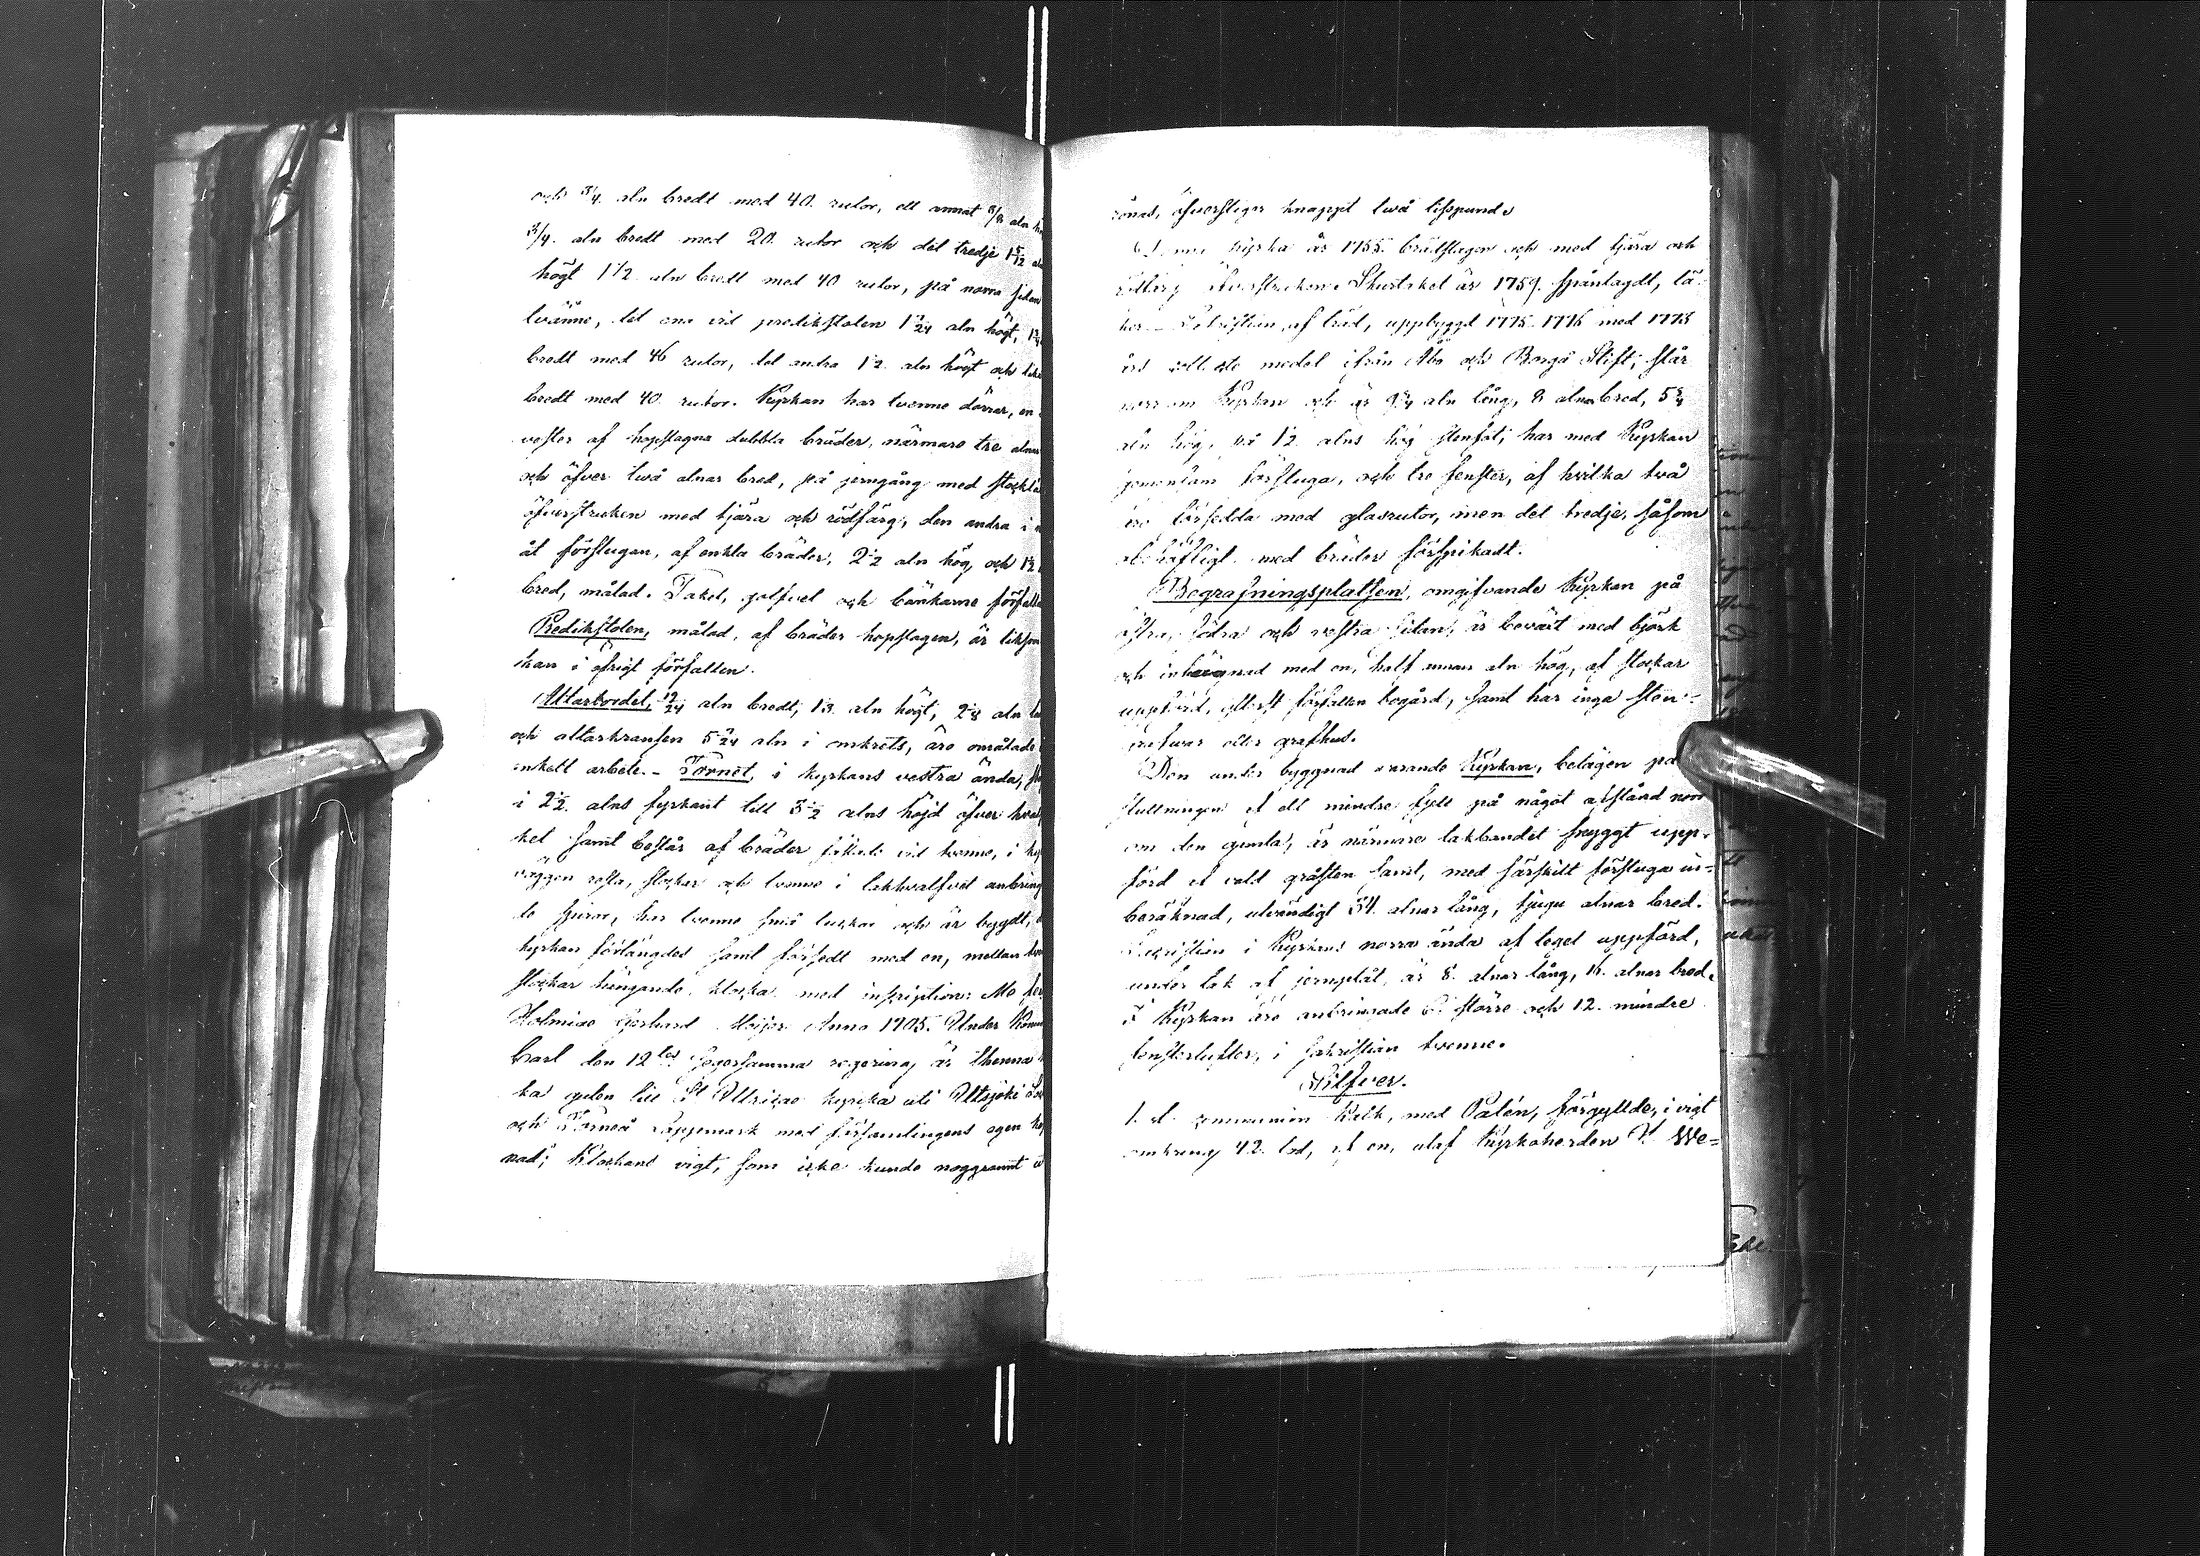 och 3/4. aln bredt med 40. rutor, ett annat 5/8 aln
3/4. aln bredt med 20. rutor och det tredje 1 5/12
högt 1 1/2 aln bredt med 40 rutor, på norra sidan
tvänne, det ena vid predikstolen aln högt,
bredt med 46 rutor, det andra 1 1/2. aln högt och
bredt med 40. rutor. Kyrkan har tvenne dörrar, en
vester af hopslagna dubbla bräder, närmare tre alnar
och öfver två alnar bred, på jerngång med
öfverstruken med tjära och rödfärg, den andra i
åt förstugan, af enkla bräder, 2 1/2 aln hög, och 1 1/2
bred, målad. Taket, golfvet och bänkarne
Predikstolen, målad, af bräder hopslagen, är
kan i öfrigt förfallen.
Altarbordet, aln bredt, aln högt, aln
och altarkransen aln i omkrets, äro omålade
enkelt arbete. - Tornet, i kyrkans vestra ända,
i 2 1/2. alns fyrkant till 3 1/2 alns höjd öfver
ket samt består af bräder vid tvenne, i
väggen resta, stockar och tvenne i takhvalfvet
de spiror, har tvenne små luckor och är bygdt,
kyrkan förlängdes samt försedt med en, mellan
stockar hängande, klocka med inscription: Me
Holmiae Gerhard Meijer Anno 1705. Under
Carl den 12tes segersamma regering, är thenna
ka guten till St Ulricae kyrcka uti Uttsjoki
och Torneå Lappmark med församlingens egen
nad; Klockans vigt, som icke kunde noggrannt
rönas, öfverstiger knappt två lispund.
kyrka år 1755. brädslagen och med tjära och
öfverstruken. Skurtaket är 1759. spånlagdt,
Sakristian, af träd, uppbyggd 1775. 1776 med 1773
års medel ifrån Åbo och Borgå Stift, står
norr om Kyrkan och är aln lång, 8 alnar bred, 5 3/4
aln hög, på 1/2 alns hög stenfot; har med Kyrkan
gemensam förstuga, och tre fenster, af hvilka två
äro försedda med glasrutor, men det tredje, såsom
med bräder förspikadt.
Begrafningsplatsen, omgifvande Kyrkan på
östra, södra och vestra sidan, är beväxt med björk
och inhägnad med en, half annan aln hög, af stockar
uppförd, ytterst förfallen bogård, samt har inga sten-
grafvar eller grafhus.
Den under byggnad varande Kyrkan, belägen på
sluttningen af ett mindre fjell på något afstånd norr
om den gamla, är närmare takbandet snyggt upp-
förd af vald gråsten samt, med särskilt förstuga in-
beräknad, utvändigt 34. alnar lång, tjugu alnar bred.
Sacristian i Kyrkans norra ända af tegel uppförd,
under tak af jernplåt, är 8. alnar lång, 16. alnar bred.
I Kyrkan äro anbringade 6. större och 12. mindre
fensterlufter, i sakristian tvenne.
Silfver.
1. communion Kalk, med Patén, förgyllde, i vigt
omkring 42. lod, af en, utaf Kyrkoherden H We=